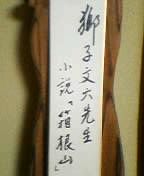 獅子文六先生
小説「箱根山」